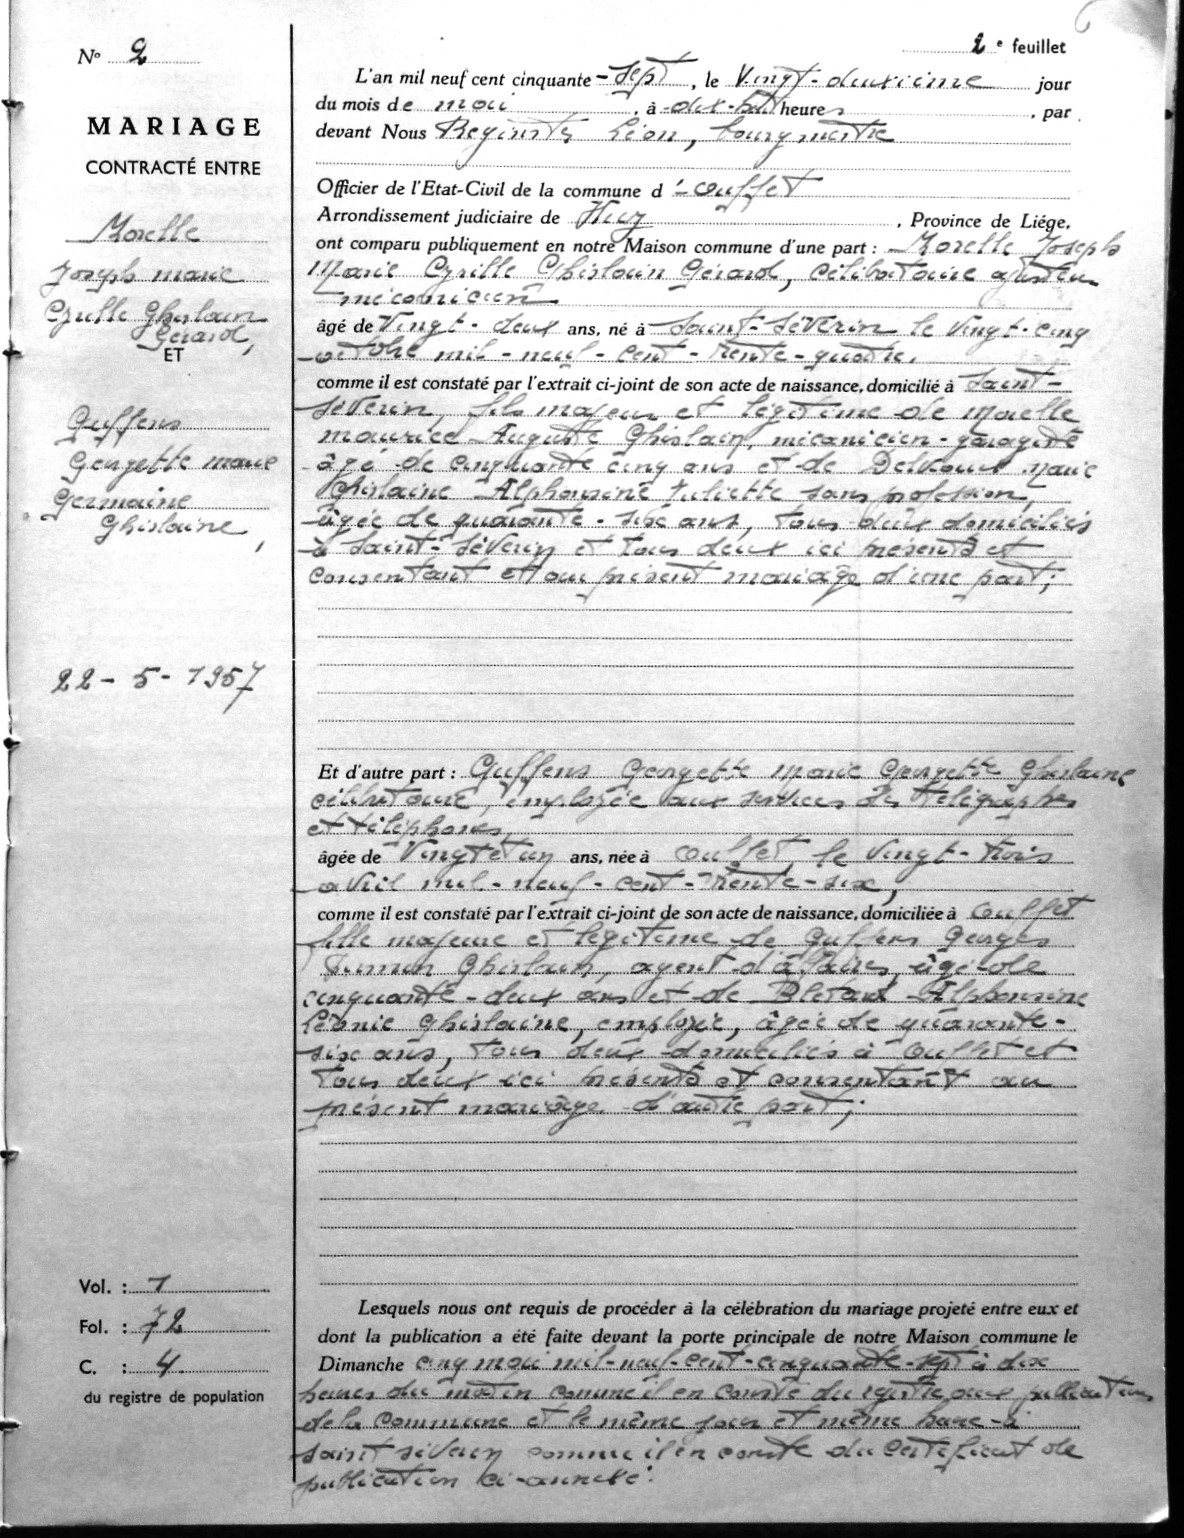 N° 2
MARIAGE
CONTRACTÉ ENTRE
Morelle
Joseph Marie
Cyrille Ghislain
Gérard,
ET
Guffens
Georgette Marie
Germaine
Ghislaine,
22-5-1957
Vol. : 1
Fol. : 72
C. : 4
du registre de population
2e feuillet
L'an mil neuf cent cinquante-sept, le Vingt-deuxième jour
du mois de mai, à heures, par
devant Nous Léon, bourgmestre
Officier de l'Etat-Civil de la commune d'Ouffet
Arrondissement judiciaire de Huy, Province de Liége,
ont comparu publiquement en notre Maison commune d'une part : Morelle Joseph
Marie Cyrille Ghislain Gérard, célibataire ajusteur
mécanicien
âgé de Vingt-deux ans, né à Saint-Séverin le vingt-cinq
octobre mil-neuf-cent-trente-quatre.
comme il est constaté par l'extrait ci-joint de son acte de naissance, domicilié à Saint-
Séverin, fils majeur et légitime de Morelle
Maurice Auguste Ghislain, mécanicien-garagiste
âgé de cinquante cinq ans et de Marie
Ghislaine Alphonsine Juliette sans profession,
âgée de quarante-six ans, tous deux domiciliés
à Saint-Séverin et tous deux ici présents et
consentant au présent mariage d'une part;
Et d'autre part : Guffens Georgette Marie Georgette Ghislaine
célibataire, employée aux services des télégraphes
et téléphones
âgée de Vingt et un ans, née à Ouffet, le Vingt-trois
avril mil-neuf-cent-trente-six,
comme il est constaté par l'extrait ci-joint de son acte de naissance, domiciliée à Ouffet
fille majeure et légitime de Guffens Georges
Ghislain, agent d'affaires, âgé de
cinquante-deux ans et de Alphonsine
Léonie Ghislaine, employée, âgée de quarante-
six ans, tous deux domiciliés à Ouffet et
tous deux ici présents et consentant au
présent mariage d'autre part;
Lesquels nous ont requis de procéder à la célébration du mariage projeté entre eux et
dont la publication a été faite devant la porte principale de notre Maison commune le
Dimanche cinq mai mil-neuf-cent-cinquante-sept à dix
heures du matin comme il en conste du registre aux publications
de la commune et le même jour et même heure à
Saint Séverin comme il en conste du certificat de
publication ci-annexé.